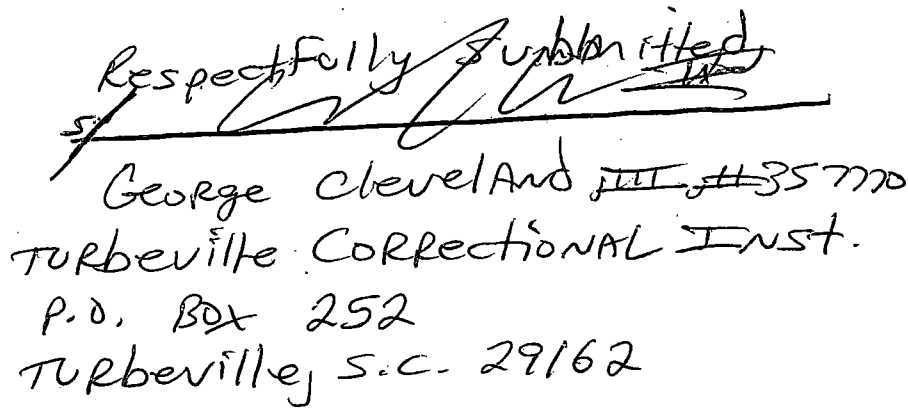 Respectfully Submitted,
s/
George Cleveland III, #357770
Turbeville Correctional Inst.
P.O. Box 252
Turbeville, S.C. 29162